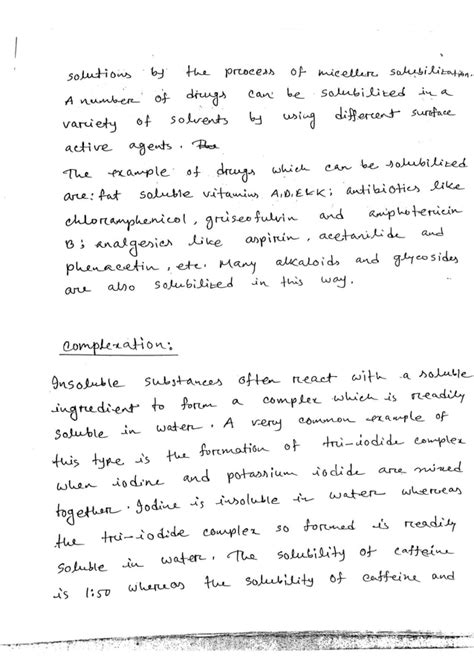 solutions by the process of micellar solubilization.
A number of drugs can be solubilized in a
variety of solvents by using different surface
active agents. The
The example of drugs which can be solubilized
are: fat soluble vitamins A,D,E&K; antibiotics like
chloramphenicol, griseofulvin and amphotericin
B; analgesics like aspirin, acetanilide and
phenacetin, etc. Many alkaloids and glycosides
are also solubilized in this way.
Complexation:
Insoluble substances often react with a soluble
ingredient to form a complex which is readily
soluble in water. A very common example of
this type is the formation of tri-iodide complex
when iodine and potassium iodide are mixed
together. Iodine is insoluble in water whereas
the tri-iodide complex so formed is readily
soluble in water. The solubility of caffeine
is 1:50 whereas the solubility of caffeine and